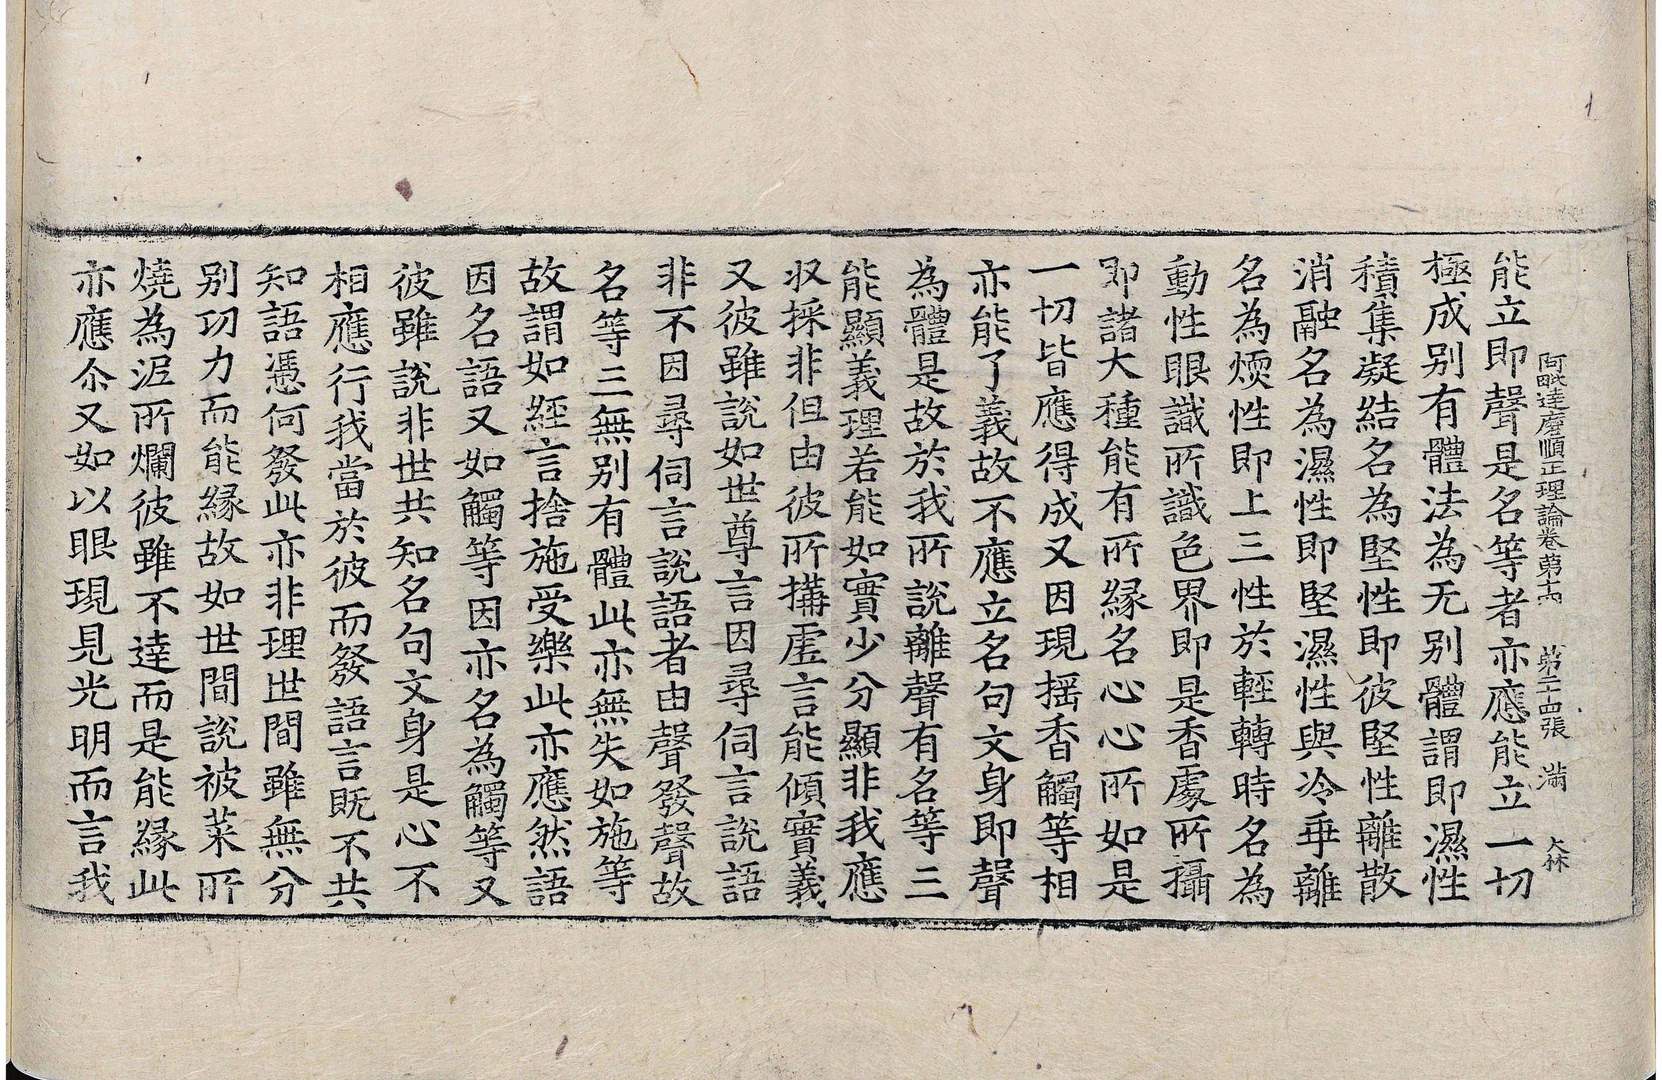 阿毗達磨順正理論卷第十四 第二十四張 滿 大林
能立即聲是名等者亦應能立一切
極成别有體法為无别體謂即濕性
積集凝結名為堅性即彼堅性離散
消融名為濕性即堅濕性與冷乖離
名為煗性即上三性於輕轉時名為
動性眼識所識色界即是香處所攝
即諸大種能有所縁名心心所如是
一切皆應得成又因現搖香觸等相
亦能了義故不應立名句文身即聲
為體是故於我所說離聲有名等三
能顯義理若能如實少分顯非我應
収採非但由彼所搆虛言能傾實義
又彼雖說如世尊言因尋伺言說語
非不因尋伺言說語者由聲發聲故
名等三無别有體此亦無失如施等
故謂如經言捨施受樂此亦應然語
因名語又如觸等因亦名為觸等又
彼雖說非世共知名句文身是心不
相應行我當於彼而發語言既不共
知語憑何發此亦非理世間雖無分
别功力而能縁故如世間說被菜所
燒為泥所爛彼雖不達而是能縁此
亦應尒又如以眼現見光明而言我